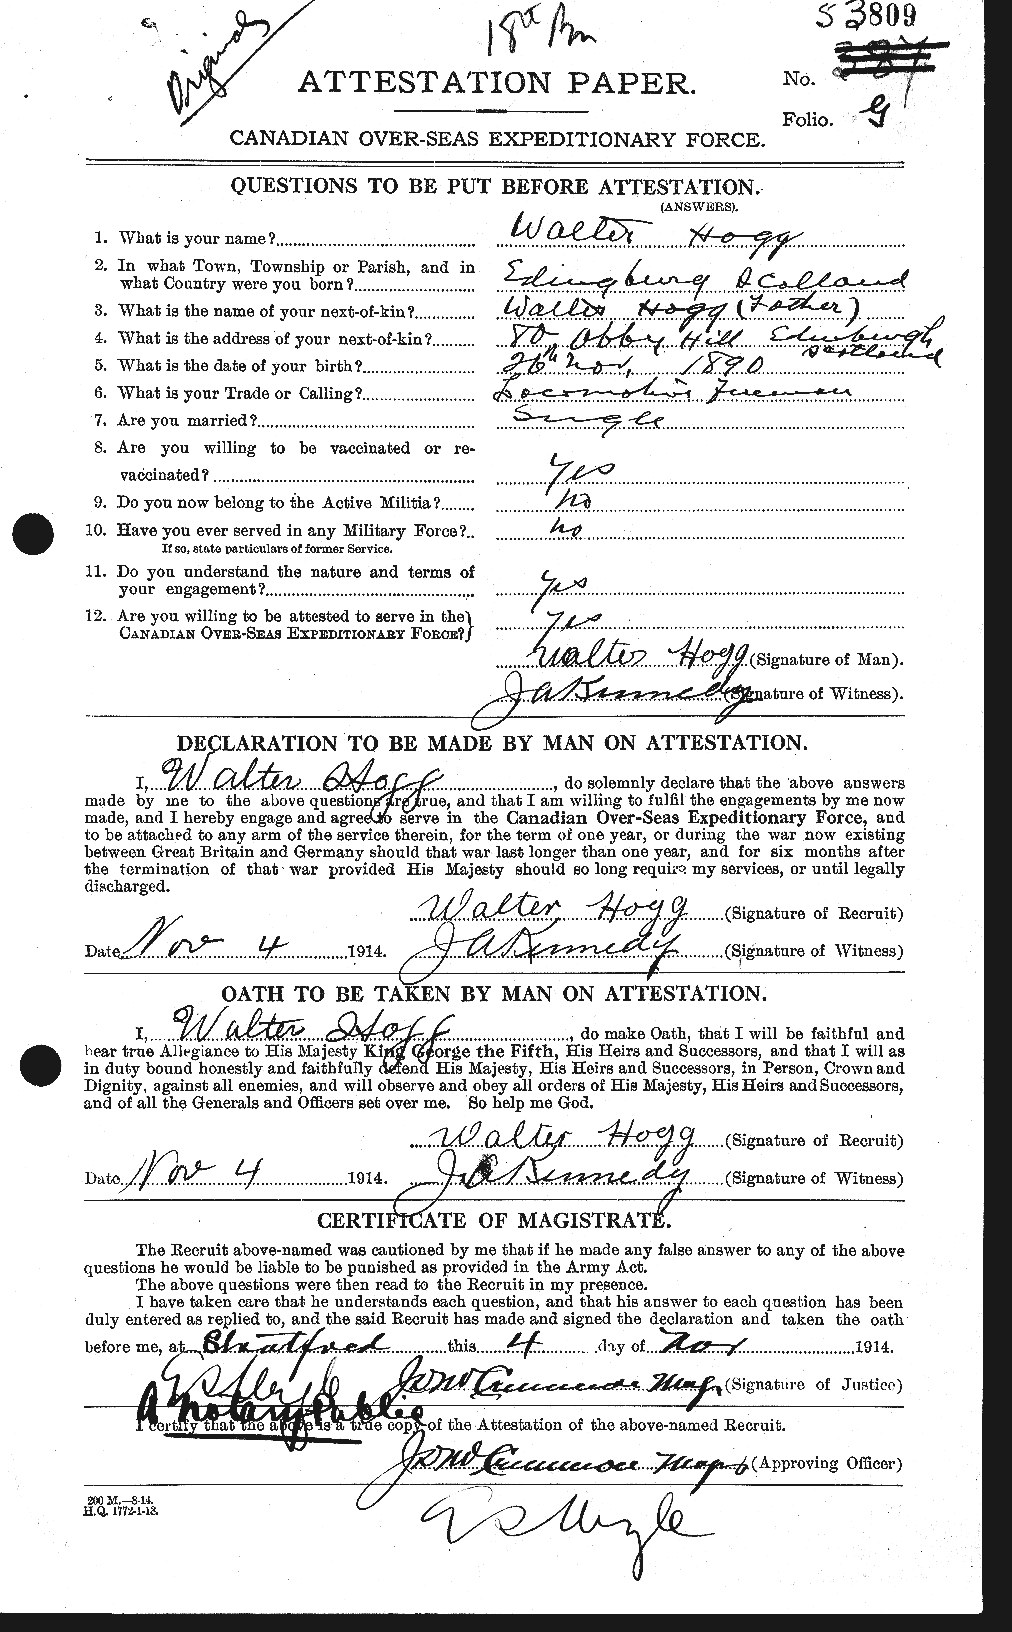 Originals
18th Bn
S 3809
ATTESTATION PAPER.
No.
Folio. G
CANADIAN OVER-SEAS EXPEDITIONARY FORCE.
QUESTIONS TO BE PUT BEFORE ATTESTATION.
(ANSWERS).
1. What is your name? Walter Hogg
2. In what Town, Township or Parish, and in
what Country were you born? Edingburg Scotland
3. What is the name of your next-of-kin? Walter Hogg (Father)
4. What is the address of your next-of-kin? 80, Abby Hill Edinburgh
Scotland
5. What is the date of your birth? 26th Nov. 1890
6. What is your Trade or Calling? Locomotive Fireman
7. Are you married? Single
8. Are you willing to be vaccinated or re-
vaccinated? Yes
9. Do you now belong to the Active Militia? No
10. Have you ever served in any Military Force? No
If so, state particulars of former Service.
11. Do you understand the nature and terms of
your engagement? Yes
12. Are you willing to be attested to serve in the
CANADIAN OVER-SEAS EXPEDITIONARY FORCE? } Yes
Walter Hogg (Signature of Man).
J A Kennedy (Signature of Witness).
DECLARATION TO BE MADE BY MAN ON ATTESTATION.
I, Walter Hogg, do solemnly declare that the above answers
made by me to the above questions are true, and that I am willing to fulfil the engagements by me now
made, and I hereby engage and agree to serve in the Canadian Over-Seas Expeditionary Force, and
to be attached to any arm of the service therein, for the term of one year, or during the war now existing
between Great Britain and Germany should that war last longer than one year, and for six months after
the termination of that war provided His Majesty should so long require my services, or until legally
discharged.
Walter Hogg (Signature of Recruit)
Date Nov 4 1914. J A Kennedy (Signature of Witness)
OATH TO BE TAKEN BY MAN ON ATTESTATION.
I, Walter Hogg, do make Oath, that I will be faithful and
bear true Allegiance to His Majesty King George the Fifth, His Heirs and Successors, and that I will as
in duty bound honestly and faithfully defend His Majesty, His Heirs and Successors, in Person, Crown and
Dignity, against all enemies, and will observe and obey all orders of His Majesty, His Heirs and Successors,
and of all the Generals and Officers set over me. So help me God.
Walter Hogg (Signature of Recruit)
Date Nov 4 1914. J A Kennedy (Signature of Witness)
CERTIFICATE OF MAGISTRATE.
The Recruit above-named was cautioned by me that if he made any false answer to any of the above
questions he would be liable to be punished as provided in the Army Act.
The above questions were then read to the Recruit in my presence.
I have taken care that he understands each question, and that his answer to each question has been
duly entered as replied to, and the said Recruit has made and signed the declaration and taken the oath
before me, at Stratford this 4 day of Nov 1914.
(Signature of Justice)
A Notary Public
I certify that the above is a true copy of the Attestation of the above-named Recruit.
(Approving Officer)
200 M.—8-14.
H.Q. 1772-1-13.